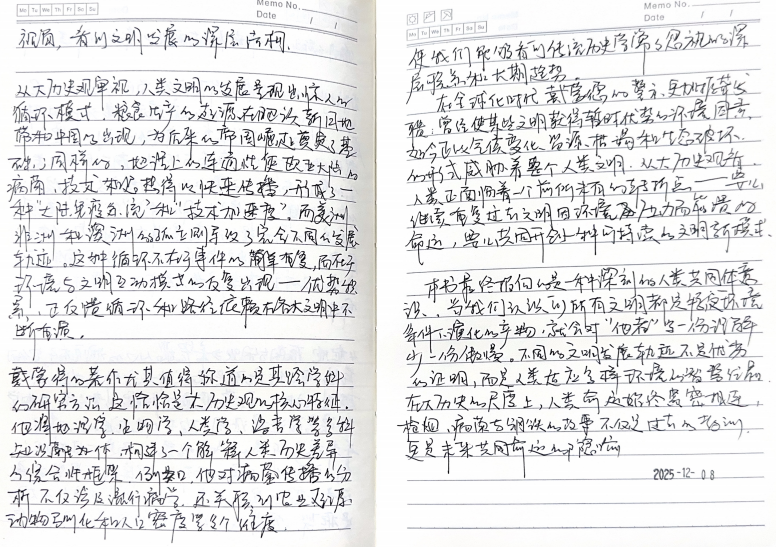 Mo Tu We Th Fr Sa Su
Memo No.
Date / /
视角，看到文明发展的深层结构。
从大历史观审视，人类文明的发展呈现出惊人的
循环模式，粮食生产的起源在肥沃新月地
带和中国的出现，为后来的帝国崛起奠定了基
础；同样的，地理上的连通性使欧亚大陆的
病菌、技术和思想得以快速传播，形成了一
种“大陆免疫系统”和“技术加速度”。而美洲、
非洲和澳洲的孤立则导致了完全不同的发展
轨迹。这种循环不在于事件的简单重复，而在于
环境与文明互动模式的反复出现——优势积
累、正反馈循环和路径依赖在各大文明中不
断重演。
戴蒙德的著作尤其值得称道的是其跨学科
的研究方法，这恰恰是大历史观的核心特征。
他将地理学、生物学、人类学、语言学等多学科
知识融为一体，构建了一个解释人类历史差异
的综合性框架。例如，他对病菌传播的分
析不仅涉及流行病学，还关联到农业起源、
动物驯化和人口密度等多个维度。
Mo Tu We Th Fr Sa Su
Memo No.
Date / /
使我们能够看到传统历史学常忽视的深
层联系和大期趋势
在全球化时代，戴蒙德的警示更加应
曾经使某些文明获得暂时优势的环境因素，
如今正以气候变化、资源枯竭和生态破坏
的形式威胁着整个人类文明。从大历史观看，
人类正面临着一个前所未有的转折点——要么
继续重复过去文明因环境压力而崩溃的
命运，要么共同开创一种可持续的文明新模式。
本书最终指向的是一种深刻的人类共同体意
识，当我们认识到所有文明都是特定环境
条件下演化的产物，就会对“他者”多一份理解
少一份傲慢。不同的文明发展轨迹不是优劣
的证明，而是人类适应多样环境的智慧结晶。
在大历史的尺度上，人类命运始终紧密相连，
枪炮、病菌与钢铁的故事不仅是过去的
更是未来共同命运的
2025-12-08